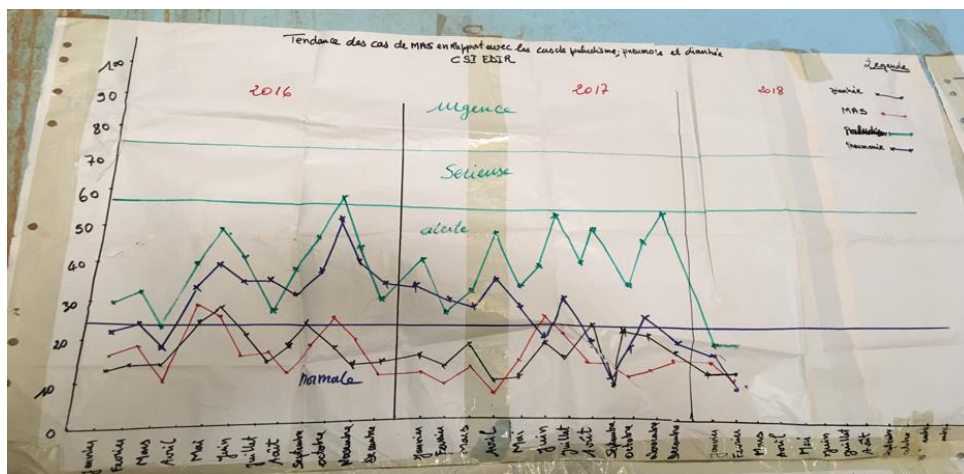 Tendance des cas de MAS en Rapport avec les cas de paludisme, pneumonie et diarrhée
CSI EDIR
Légende
Diarrhée
MAS
Paludisme
Pneumonie
2016
2017
2018
Urgence
Sérieuse
alerte
normale
100
90
80
70
60
50
40
30
20
10
0
Janvier
Fevrier
Mars
Avril
Mai
Juin
Juillet
Août
Septembre
octobre
Novembre
Decembre
Janvier
Fevrier
Mars
Avril
Mai
Juin
Juillet
Août
Septembre
octobre
Novembre
Decembre
Janvier
Fevrier
Mars
Avril
Mai
Juin
Juillet
Août